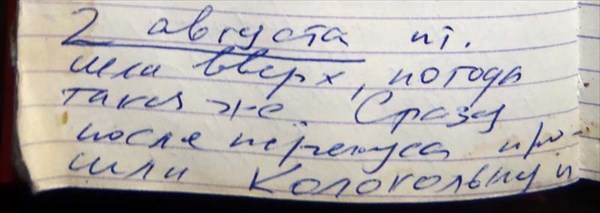 2 августа пт.
шли вверх, погода
такая же. Сразу
после перекуса про-
шли Колокольную